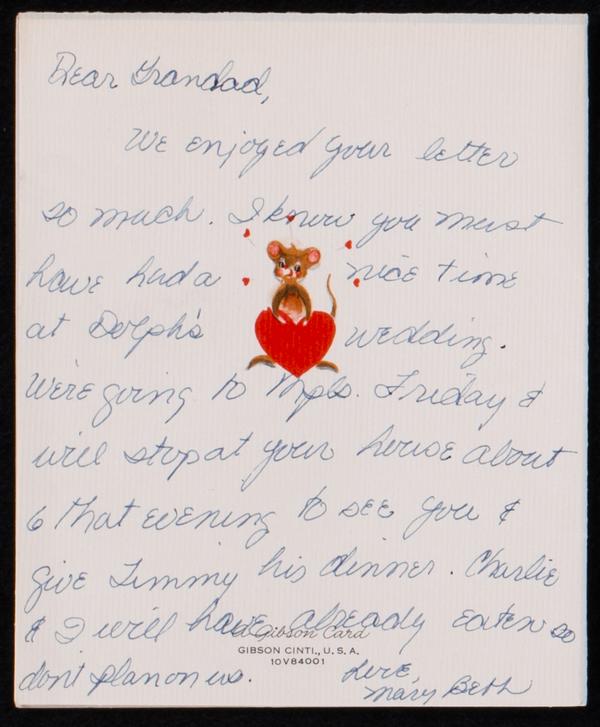 Dear Grandad,
We enjoyed your letter
so much. I know you must
have had a nice time
at Dolph's wedding.
We're going to Mpls. Friday &
will stop at your house about
6 that evening to see you &
give Timmy his dinner. Charlie
& I will have already eaten so
A Gibson Card
GIBSON CINTI., U.S.A.
10V84001
don't plan on us.
Love,
Mary Beth